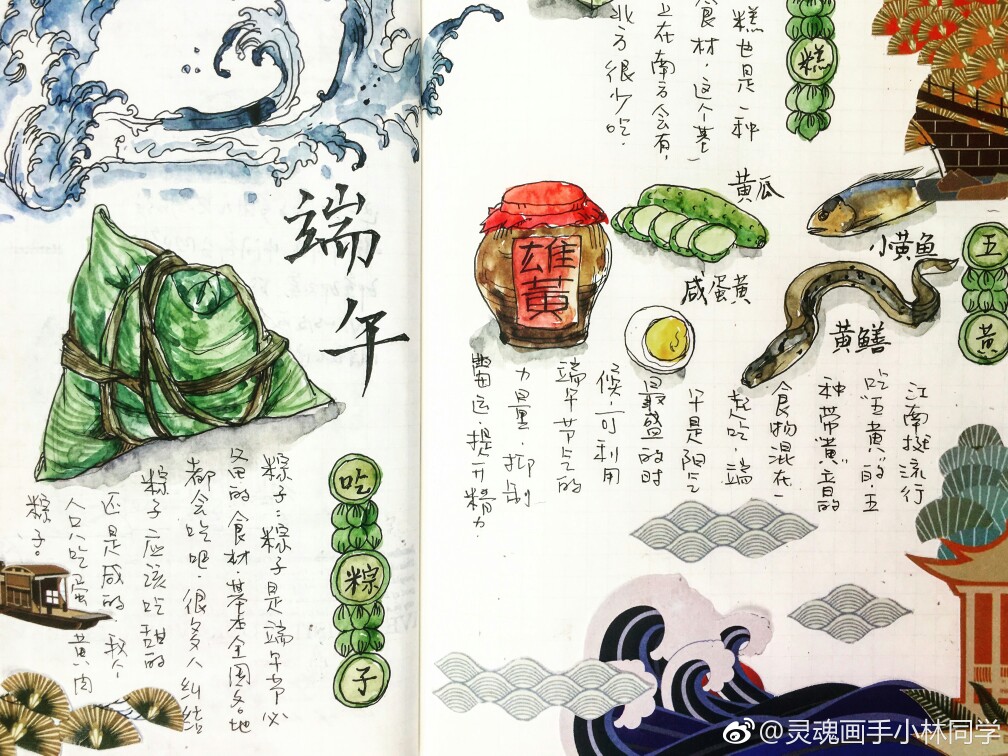 端午
吃粽子
粽子：粽子是端午节必
备的食材，基本全国各地
都会吃吧，很多人纠结
粽子应该吃甜的
还是咸的，我个
人只吃蛋黄肉
粽子。
糕
糕也是一种
食材，这个基
上在南方会有，
北方很少吃.
雄黄
黄瓜
咸蛋黄
小黄鱼
黄鳝
五黄
江南挺流行
吃"五黄"的.五
种带"黄"音的
食物混在一
起吃，端
午是阳气
最盛的时
候，可利用
端午节气的
力量，抑制
霉运，提升精力
@灵魂画手小林同学